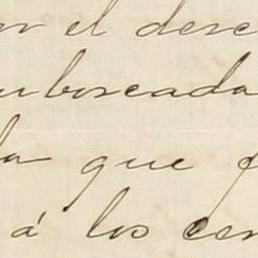 el dese
uboscada
la que
á los cen